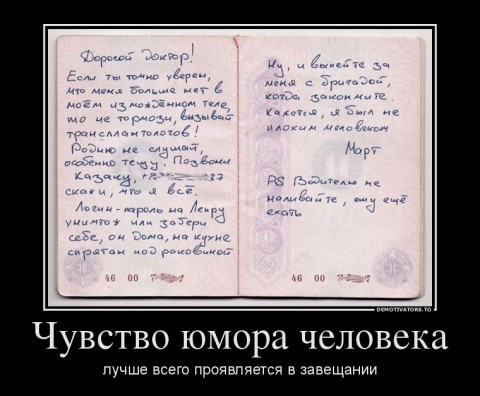 Дорогой Доктор!
Если ты точно уверен,
что меня больше нет в
моём измождённом теле,
то не тормози, вызывай
трансплантологов!
Родню не слушай,
особенно тещу. Позвони
Казаку,
скажи, что я всё.
Логин-пароль на Лепру
уничтож или забери
себе, он дома, на кухне
спрятан под раковиной
46 00
Ну, и выпейте за
меня с бригадой,
когда закончите.
Кажется, я был не
плохим человеком
Март
PS Водителю не
наливайте, ему ещё
ехать
46 00
DEMOTIVATORS.TO
Чувство юмора человека
лучше всего проявляется в завещании